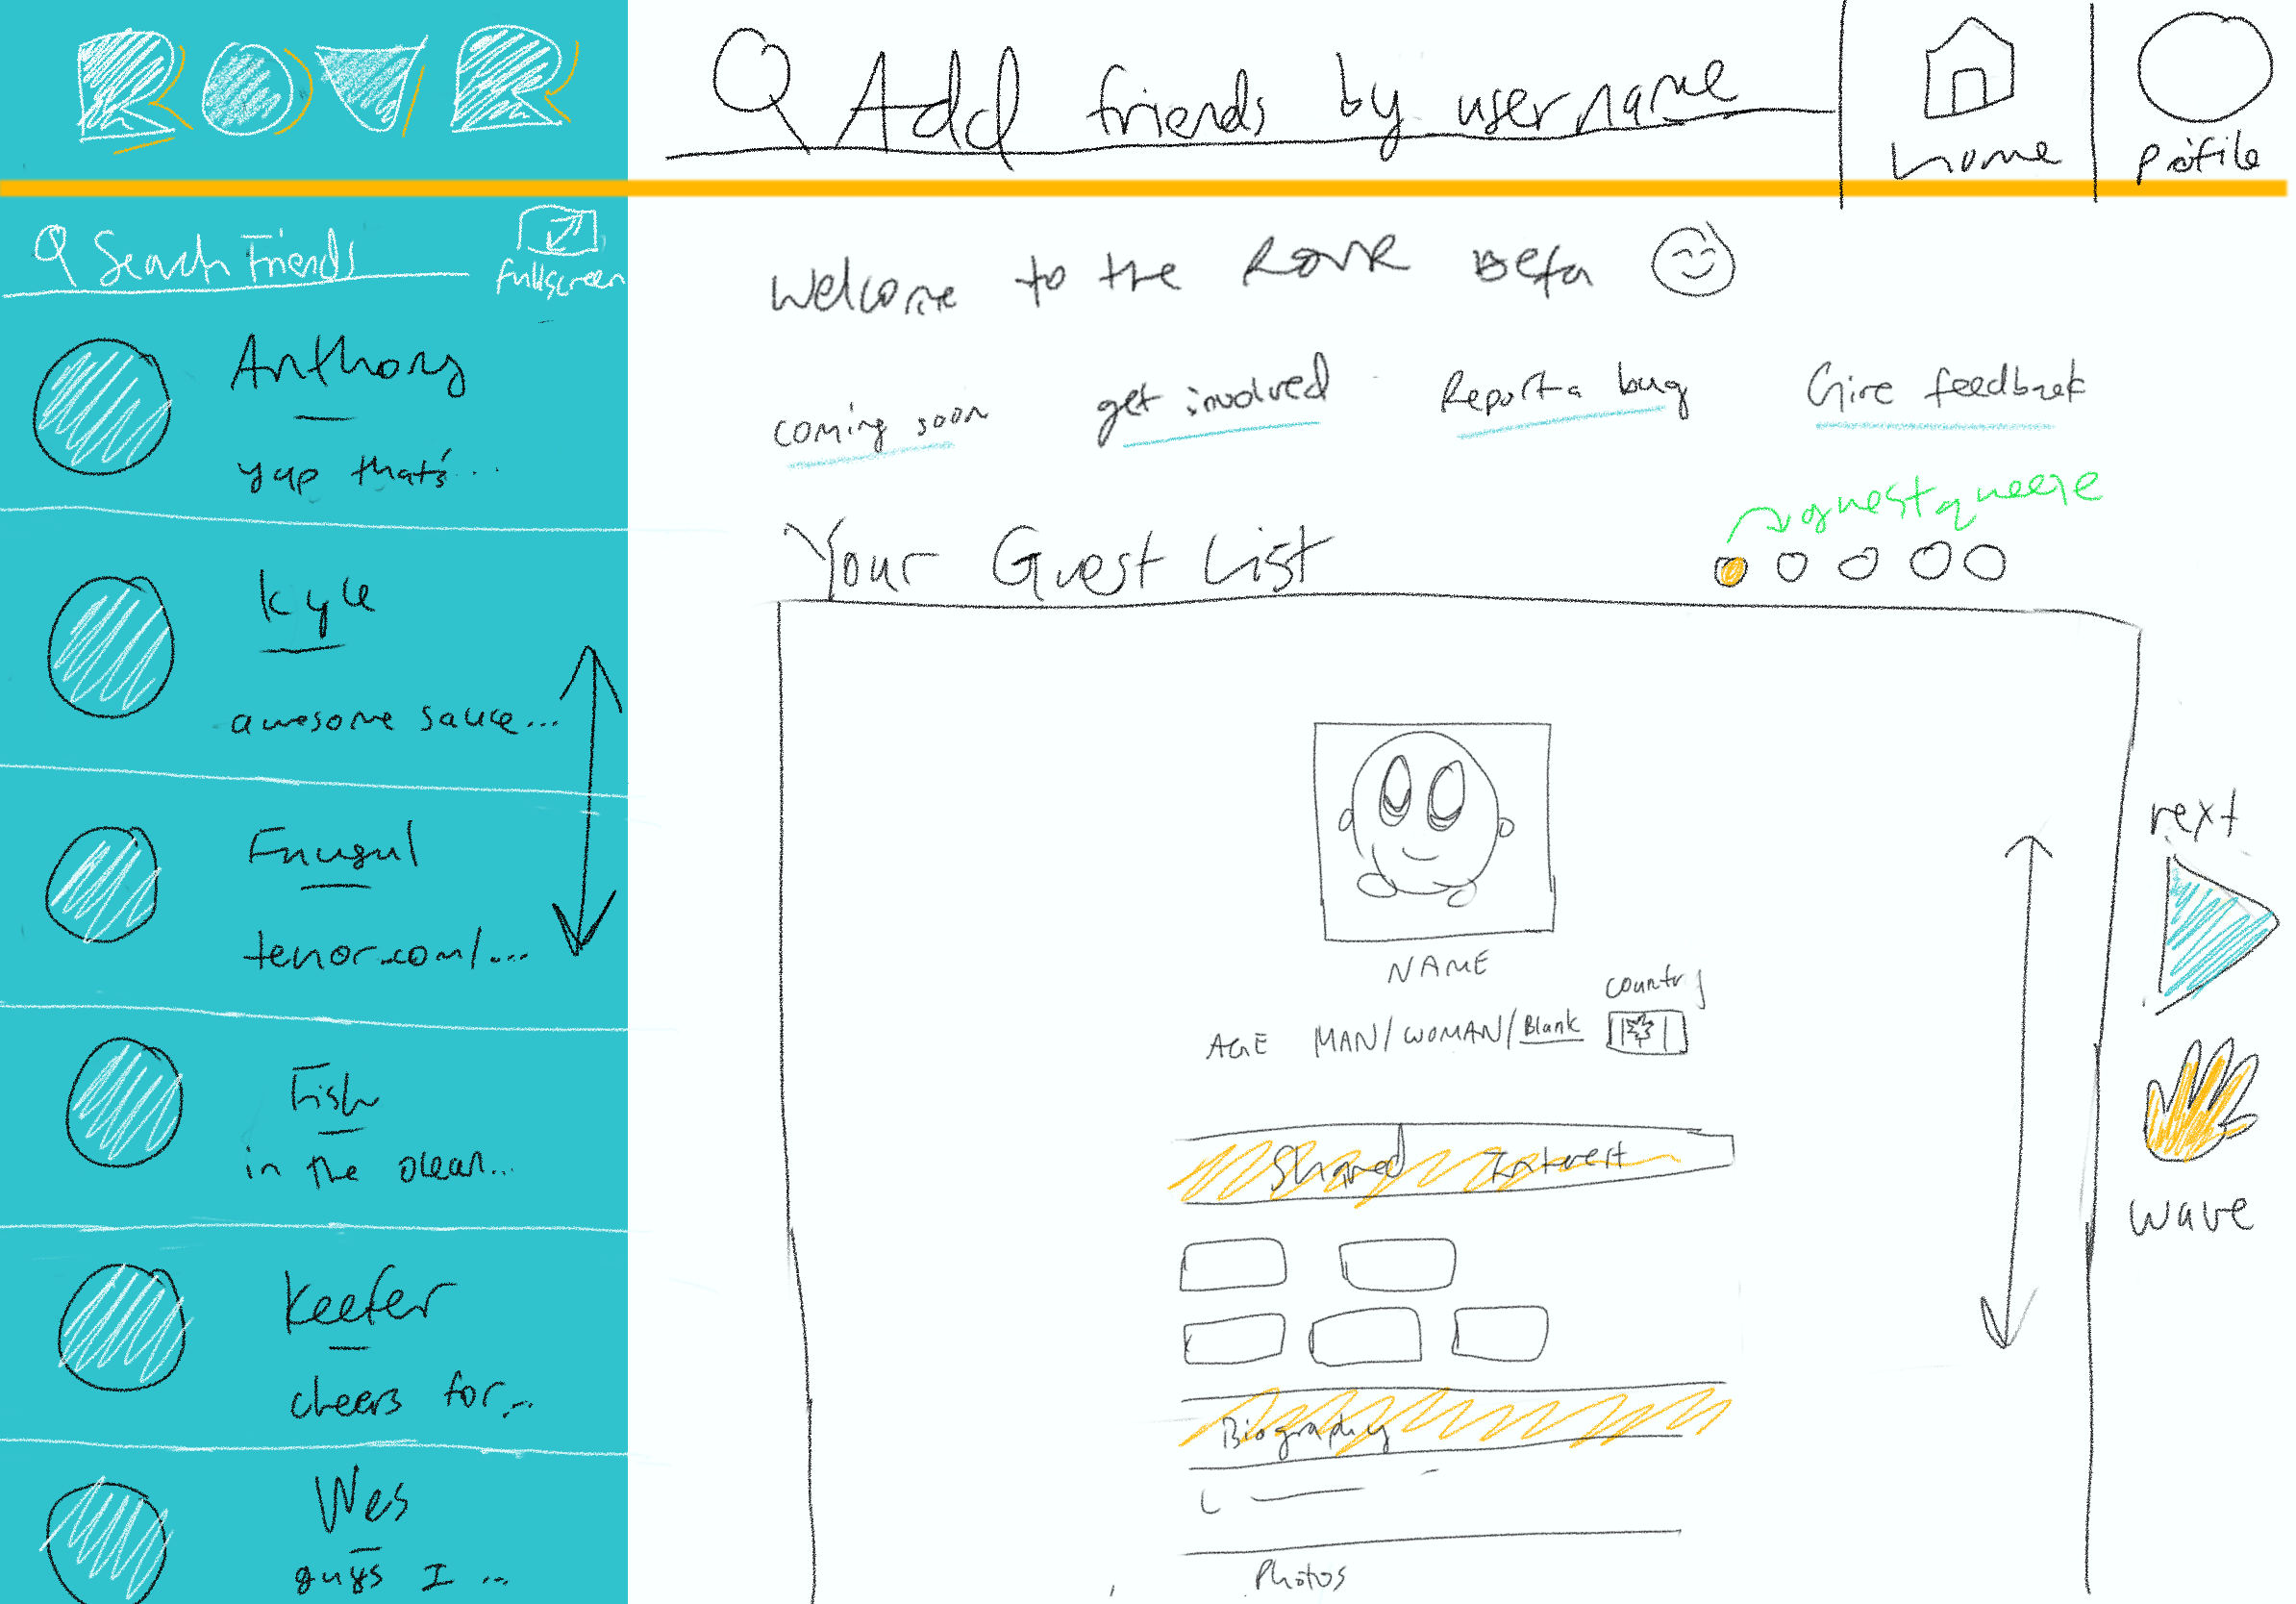 ROVR
Add friends by username
home
profile
Search Friends
fullscreen
Anthony
yap that's...
Kyle
awesome sauce...
Frugul
tenor.com/...
Fish
in the ocean...
Keefer
cheers for...
Wes
guys I ...
Welcome to the ROVR Beta
coming soon
get involved
Report a bug
Give feedback
Your Guest List
guest queue
NAME
AGE
MAN/WOMAN/Blank
country
Shared Interest
Biography
Photos
next
wave